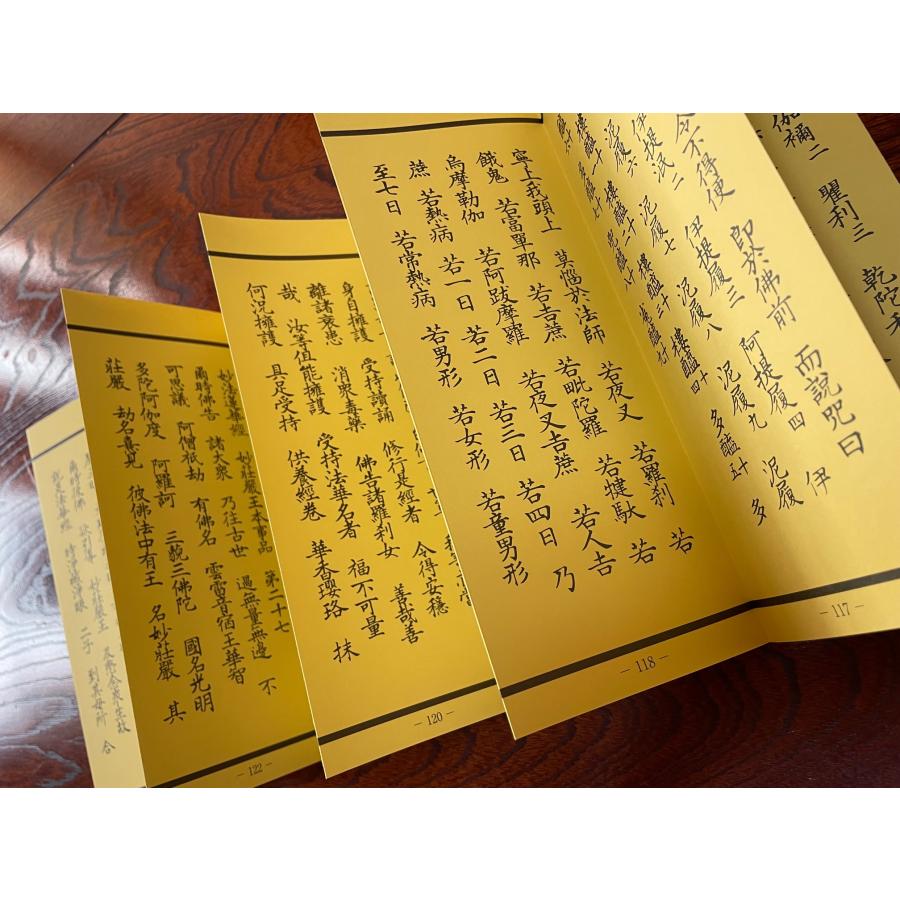 伽禰二 瞿利三 乾陀
令不得便 即於佛前 而說咒曰 伊
提泯二 伊提履三 阿提履四
泥履六 泥履七 泥履八 泥履九 泥履
醯十一 樓醯十二 樓醯十三 樓醯十四 多
醯十五 多
寧上我頭上 莫惱於法師 若夜叉 若羅刹 若
餓鬼 若富單那 若吉蔗 若毗陀羅 若犍馱 若
烏摩勒伽 若阿跋摩羅 若夜叉吉蔗 若人吉
蔗 若熱病 若一日 若二日 若三日 若四日 乃
至七日 若常熱病 若男形 若女形 若童男形
－117－
－118－
身自擁護 受持讀誦 修行是經者 令得安穩
離諸衰患 消衆毒藥 佛告諸羅刹女 善哉善
哉 汝等但能擁護 受持法華名者 福不可量
何況擁護 具足受持 供養經卷 華香瓔珞 抹
－120－
妙法蓮華經 妙莊嚴王本事品 第二十七
爾時佛告 諸大衆 乃往古世 過無量無邊 不
可思議 阿僧祇劫 有佛名 雲雷音宿王華智
多陀阿伽度 阿羅訶 三藐三佛陀 國名光明
莊嚴 劫名憙見 彼佛法中有王 名妙莊嚴 其
－122－
爾時彼佛 欲引導 妙莊嚴王 及愍念衆生故
說是法華經 時淨藏淨眼 二子 到其母所 合